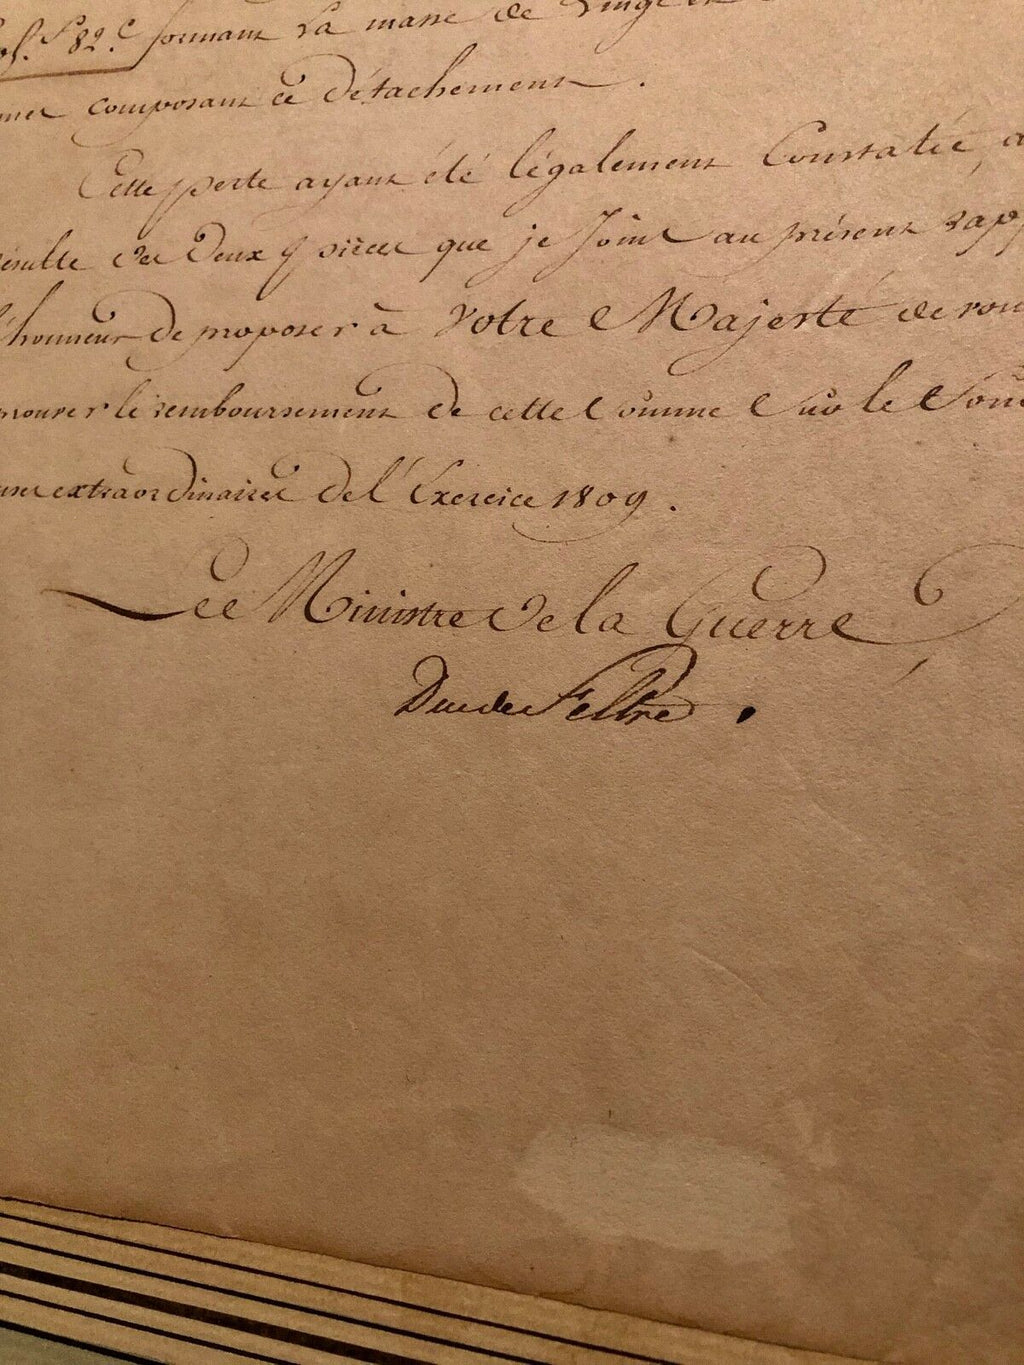 f. 82.c formant la masse de vingt et
composant ce détachement.
Cette perte ayant été légalement Constatée, a
résulte des deux pièces que je Joint au présent rapp
l'honneur de proposer à Votre Majesté de vou
le remboursement de cette Somme Sur le
extraordinaires de l'Exercice 1809.
Le Ministre de la Guerre,
Duc de Feltre.